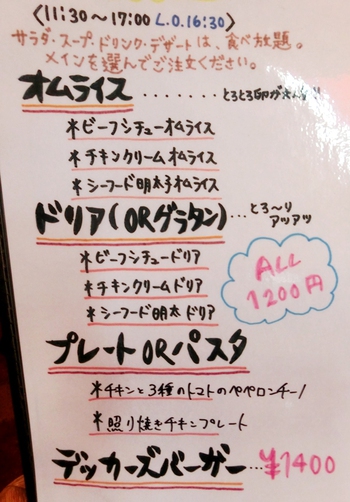 〈11:30～17:00 L.O.16:30〉
サラダ・スープ・ドリンク・デザートは、食べ放題。
メインを選んでご注文ください。
オムライス ....... とろとろ卵が
＊ビーフシチューオムライス
＊チキンクリームオムライス
＊シーフード明太子オムライス
ドリア(ORグラタン)...とろ～り
アッアツ
＊ビーフシチュードリア
＊チキンクリームドリア
＊シーフード明太ドリア
ALL
1200円
プレートORパスタ
＊チキンと3種のトマトのペペロンチーノ
＊照り焼きチキンプレート
デッカーズバーガー...¥1400